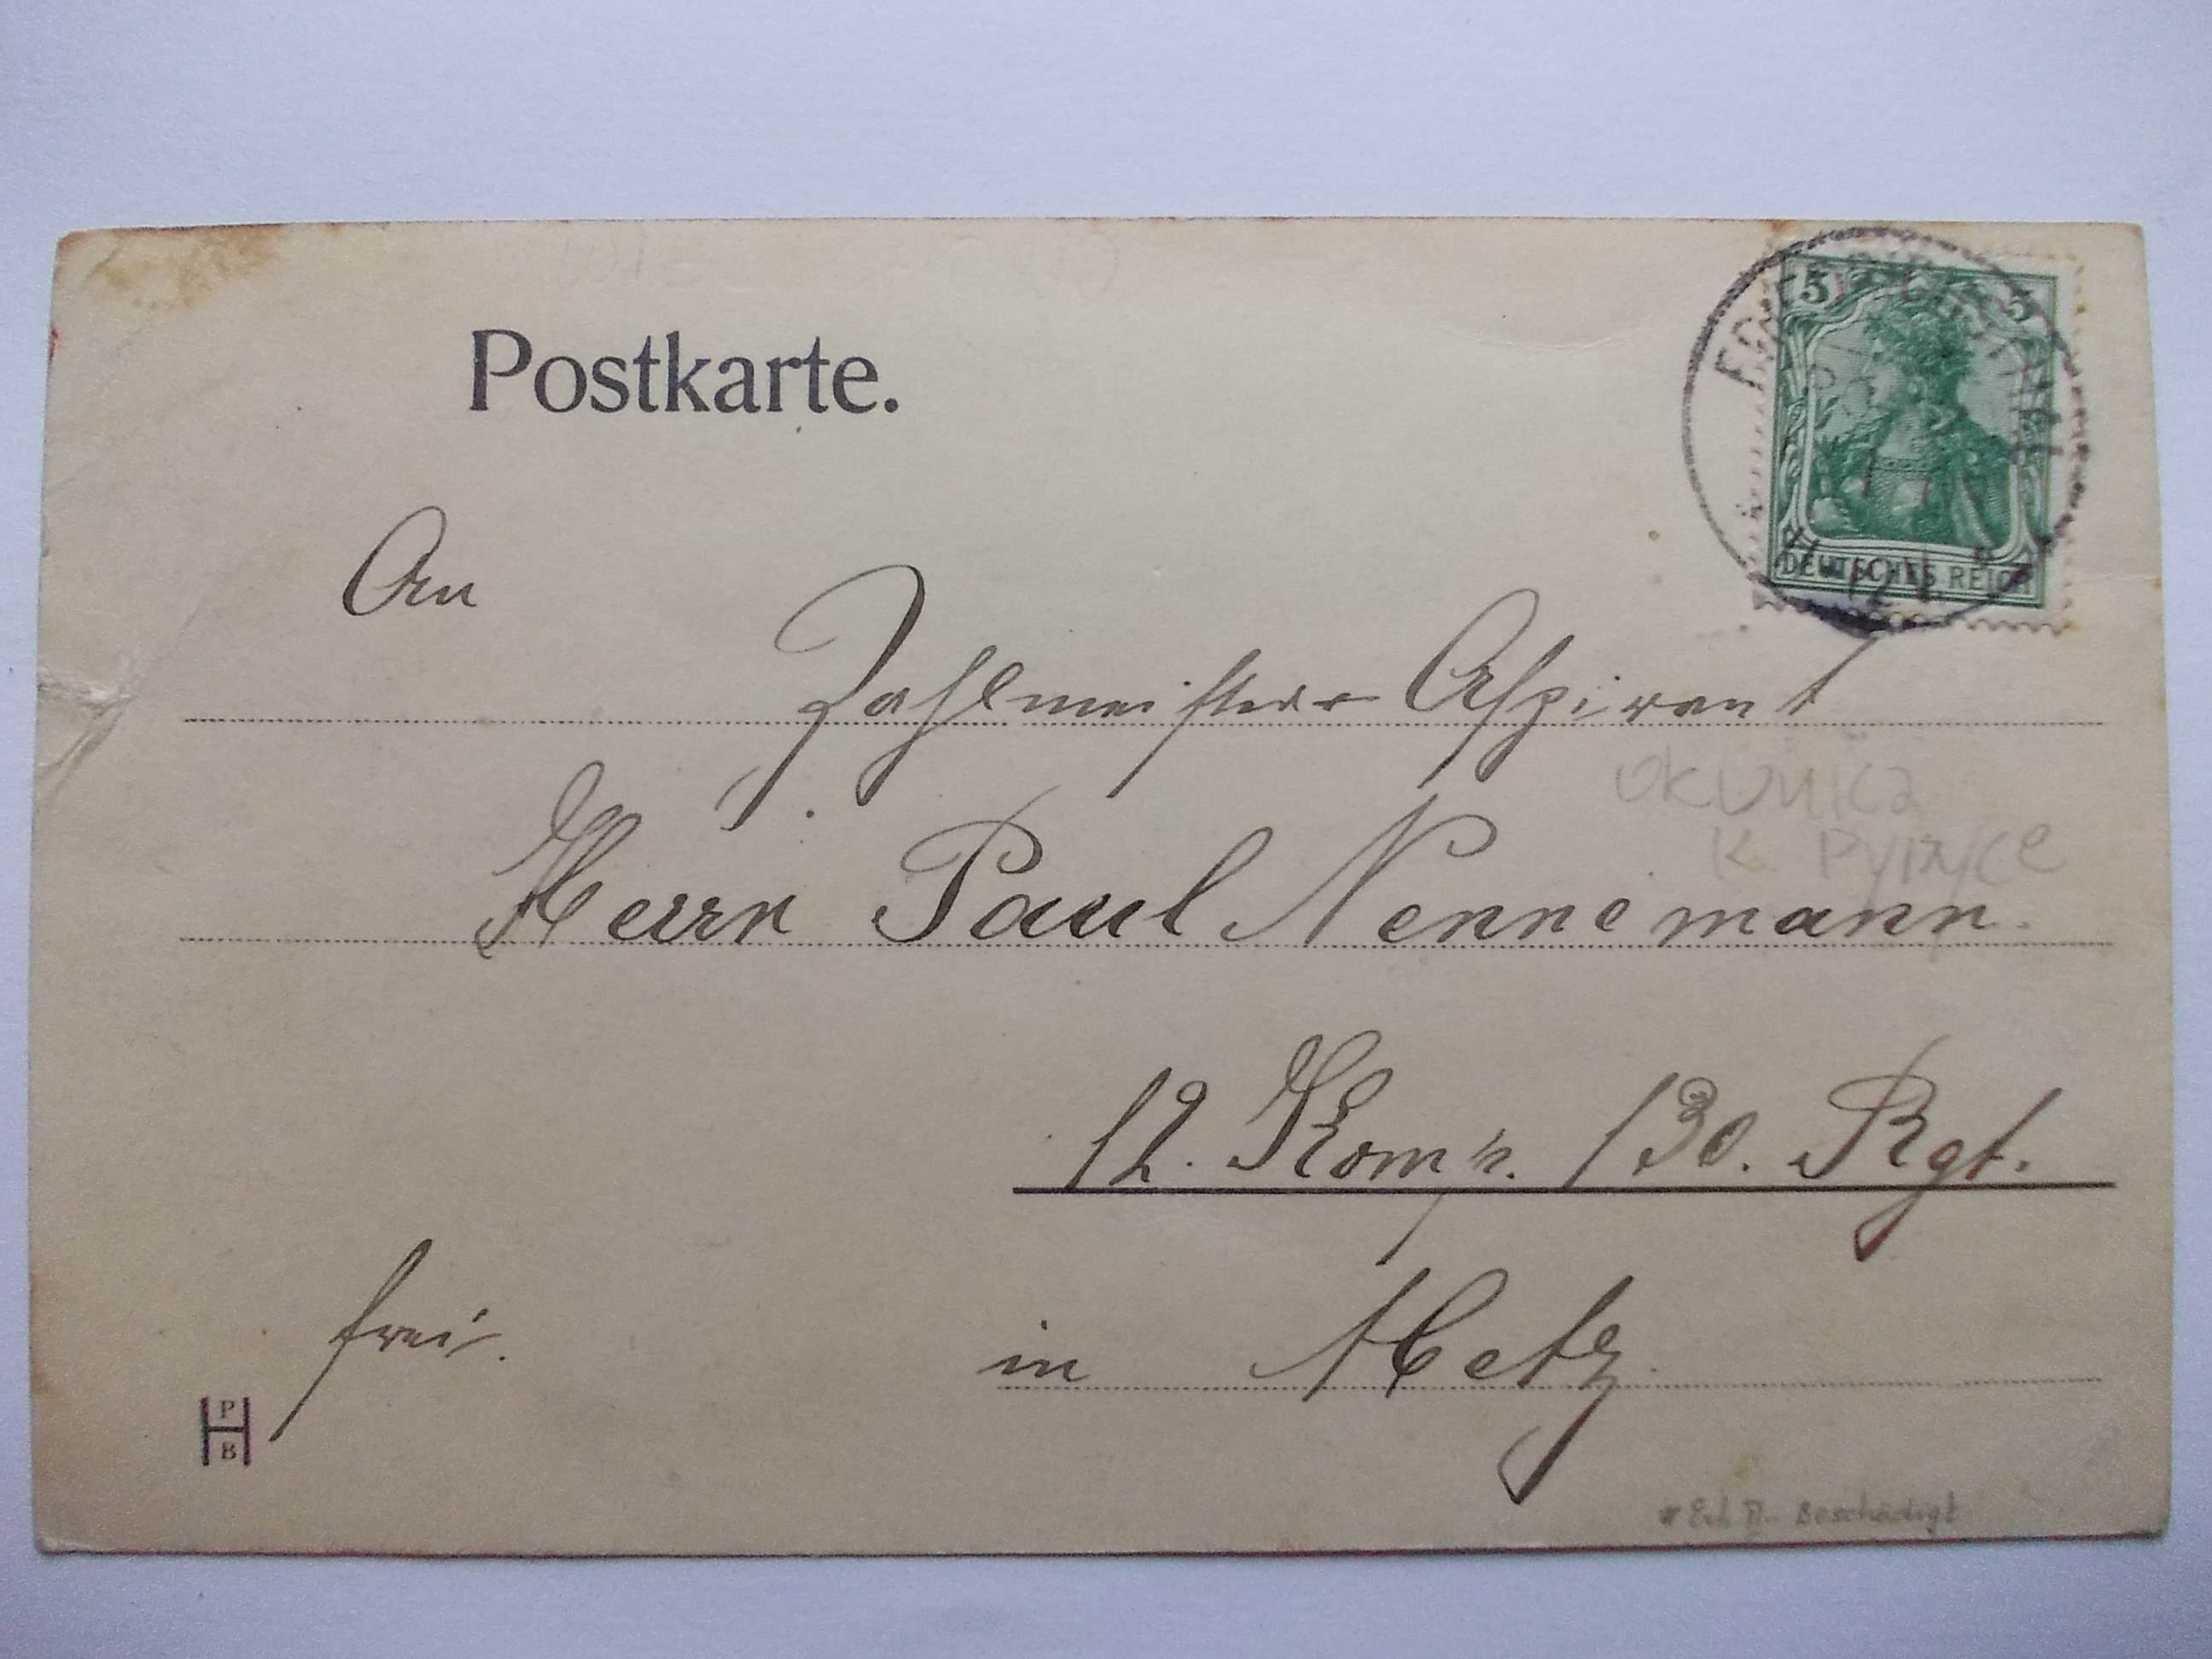 Postkarte.
5 5
DEUTSCHES REICH
An
Zahlmeister-Aspirant
okunica
k. Pyrzyce
Herrn Paul Nennemann.
12. Komp. 130. Rgt.
frei.
in Metz.
P
B
Beschädigt